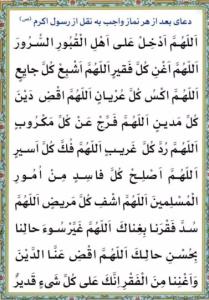 دعای بعد از هر نماز واجب به نقل از رسول اکرم (ص)
اَللّهُمَّ اَدْخِلْ عَلى اَهْلِ الْقُبُورِ السُّرُورَ
اَللّهُمَّ اَغْنِ كُلَّ فَقيرٍ اَللّهُمَّ اَشْبِعْ كُلَّ جايِعٍ
اَللّهُمَّ اكْسُ كُلَّ عُرْيانٍ اَللّهُمَّ اقْضِ دَيْنَ
كُلِّ مَدينٍ اَللّهُمَّ فَرِّجْ عَنْ كُلِّ مَكْرُوبٍ
اَللّهُمَّ رُدَّ كُلَّ غَريبٍ اَللّهُمَّ فُكَّ كُلَّ اَسيرٍ
اَللّهُمَّ اَصْلِحْ كُلَّ فاسِدٍ مِنْ اُمُورِ
الْمُسْلِمينَ اَللّهُمَّ اشْفِ كُلَّ مَريضٍ اَللّهُمَّ
سُدَّ فَقْرَنا بِغِناكَ اَللّهُمَّ غَيِّرْ سُوءَ حالِنا
بِحُسْنِ حالِكَ اَللّهُمَّ اقْضِ عَنَّا الدَّيْنَ
وَاَغْنِنا مِنَ الْفَقْرِ اِنَّكَ عَلى كُلِّ شَيْءٍ قَديرٌ